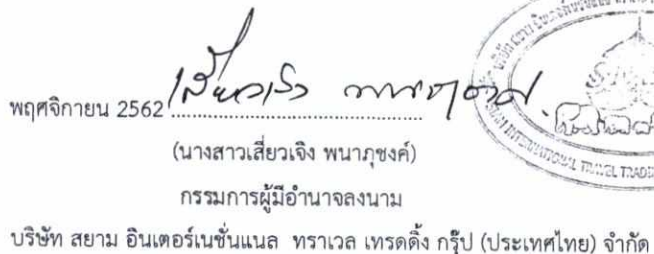 พฤศจิกายน 2562
(นางสาวเสี่ยวเจิง พนาภุชงค์)
กรรมการผู้มีอำนาจลงนาม
บริษัท สยาม อินเตอร์เนชั่นแนล ทราเวล เทรดดิ้ง กรุ๊ป (ประเทศไทย) จำกัด
INTERNATIONAL TRAVEL